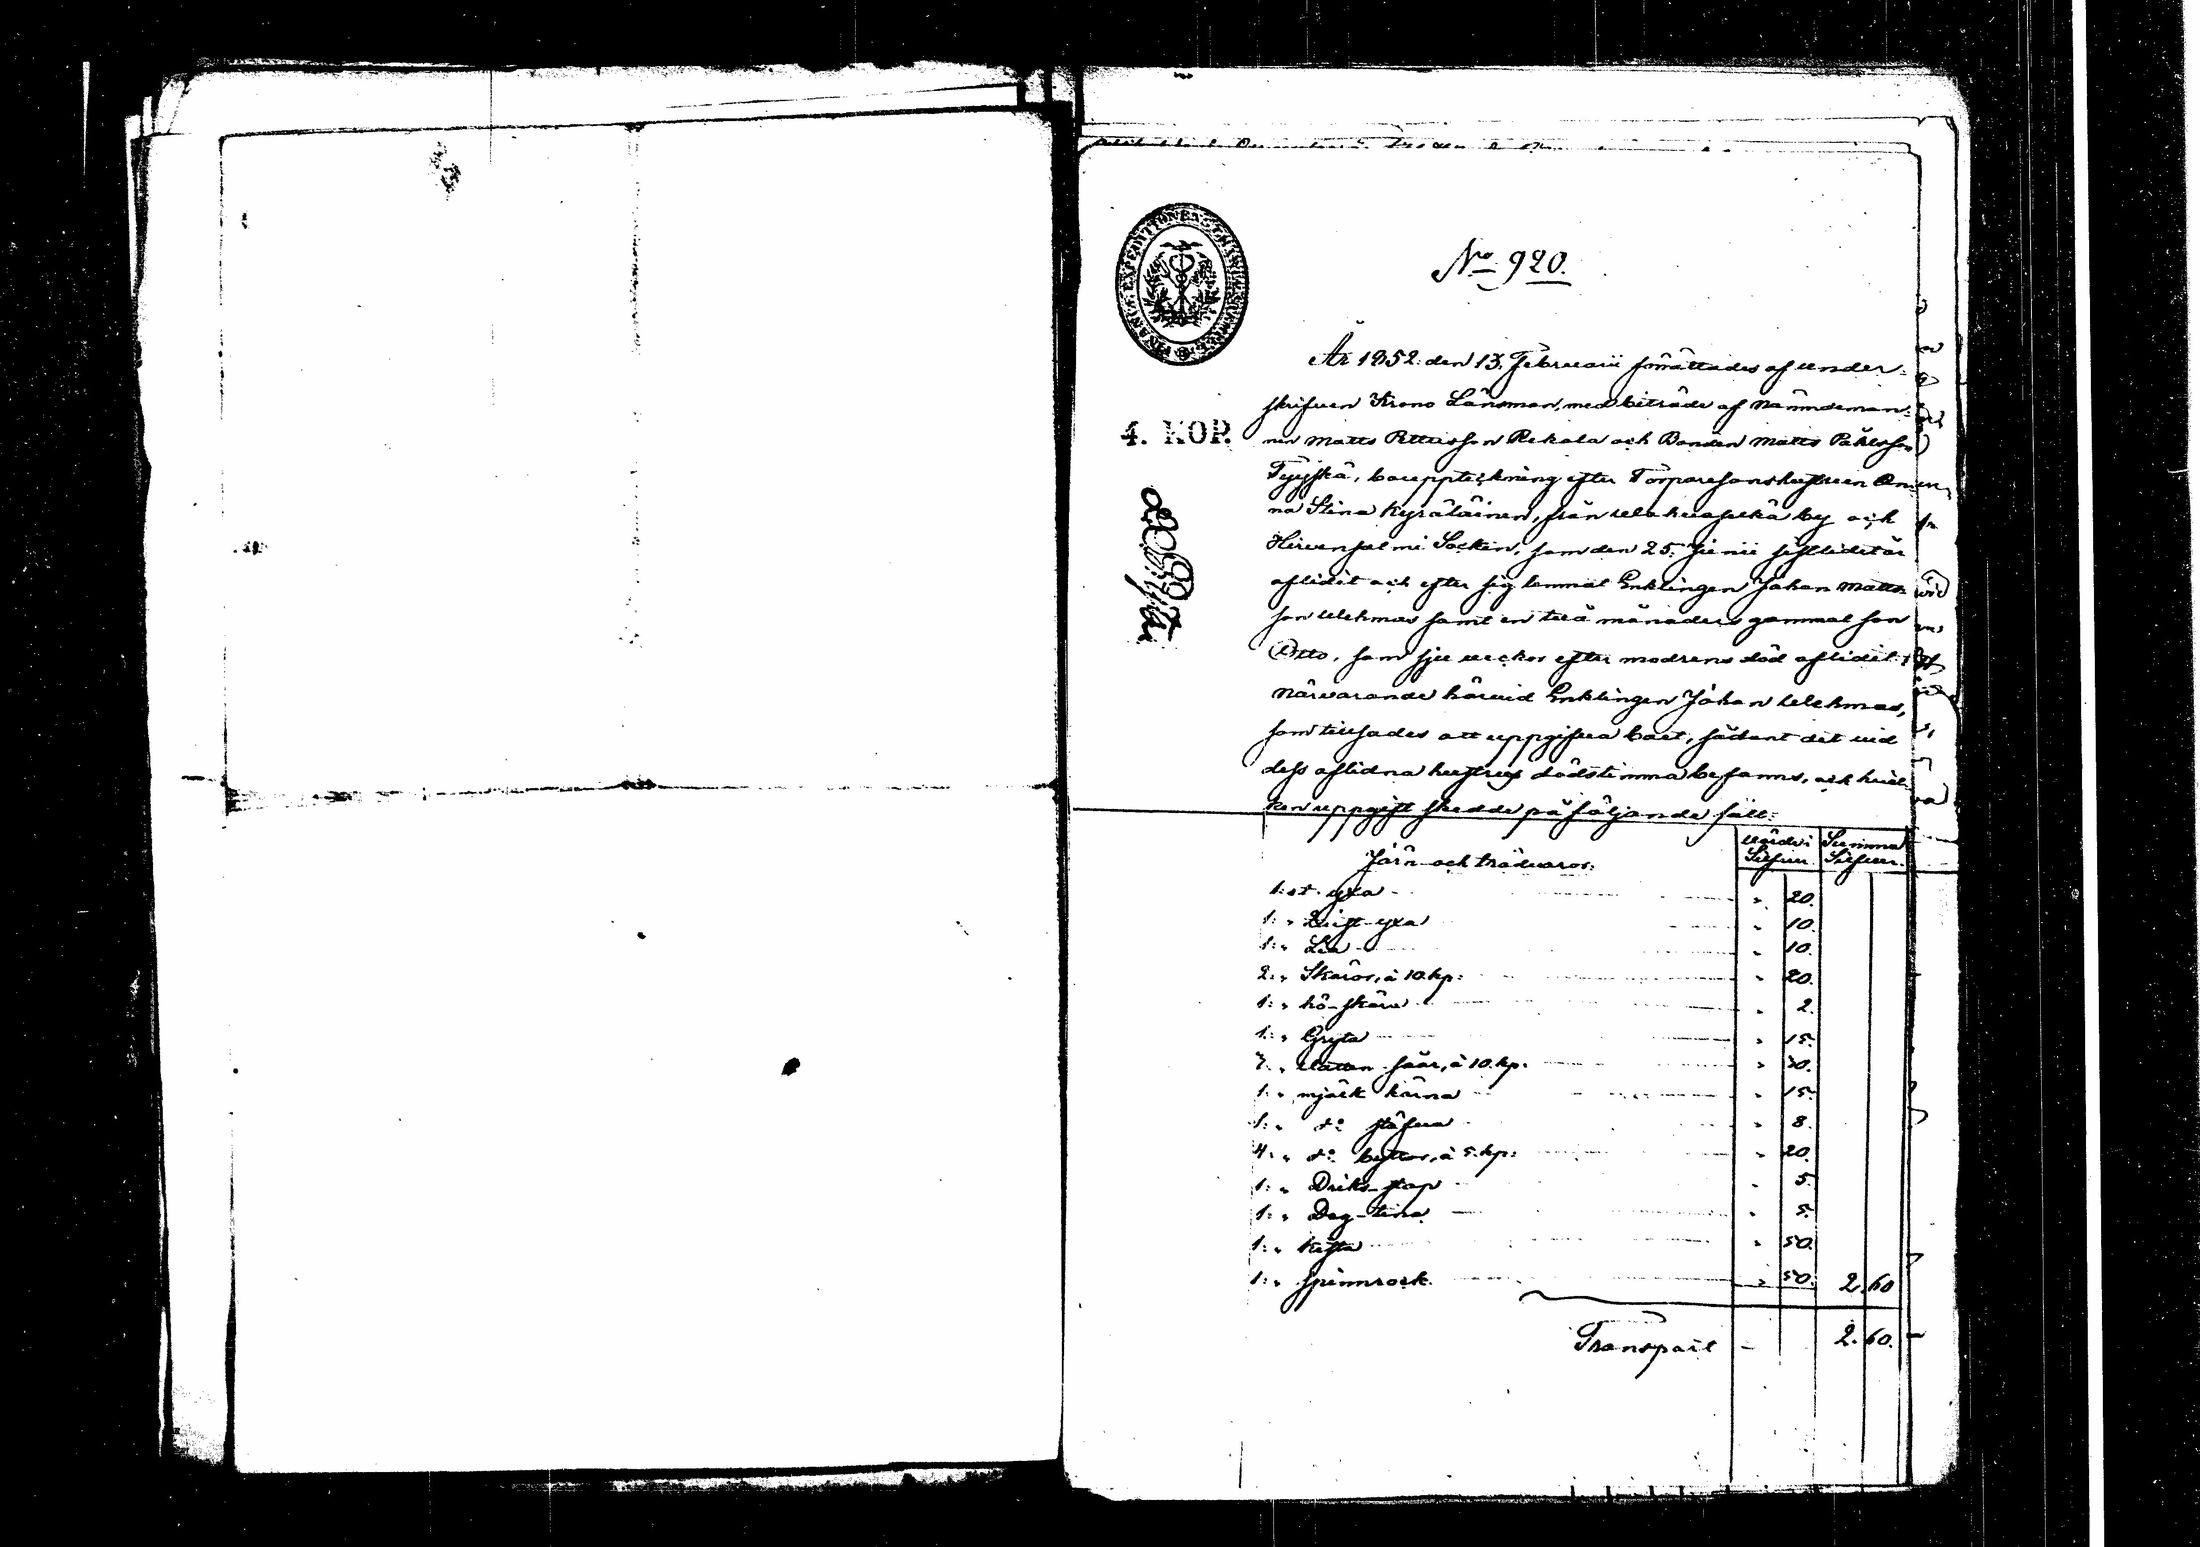 No 920.
År 1852. den 13. Februarii förrättades af under-
skrifven Krono Länsman, med biträde af Nämndeman-
nen Matts Pettersson Rekola och Bonden Matts Påhlsson
Tyyskä, bouppteckning efter Torparesonshustrun An-
na Stina Kyräläinen, från by och
Hirvensalmi Socken, som den 25. Junii sistlidet år
aflidit och efter sig lemnat Enklingen Johan Matts-
son Uehmas samt en två månaders gammal son
Otto, som sju veckor efter modrens död aflidit;
närvarande härvid Enklingen Johan Uehmas,
som tillsades att uppgifva boet, sådant det vid
dess aflidna hustrus dödstimma befanns, och hvil-
ken uppgift skedde på följande sätt:
4. KOP.
Järn och trädvaror. Värde i Silfver. Summa Silfver.
1. st. yxa " 20.
1. " yxa " 10.
1. " Lia " 10.
2. " Skäror, à 10. kp: " 20.
1. " hö-skära " 2.
1. " Gryta " 15.
3. " Vatten såar, à 10. kp. " 30.
1. " mjölk kärna " 15.
1. " do stäfva " 8.
4. " do byttor, à 5. kp: " 20.
1. " Driks-stop " 5.
1. " Deg-tina " 5.
1. " Kista " 50.
1. " spinnrock " 50. 2. 60
Transport - 2. 60.